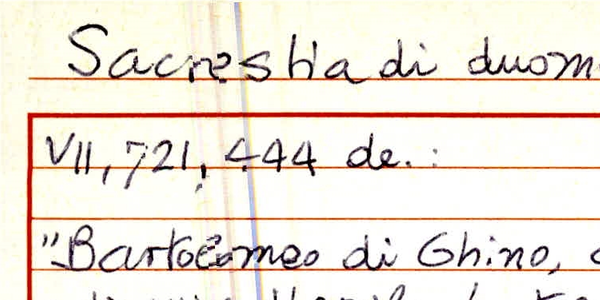 Sacrestia di duom
VII, 721, 444 de. :
"Bartolomeo di Ghino,